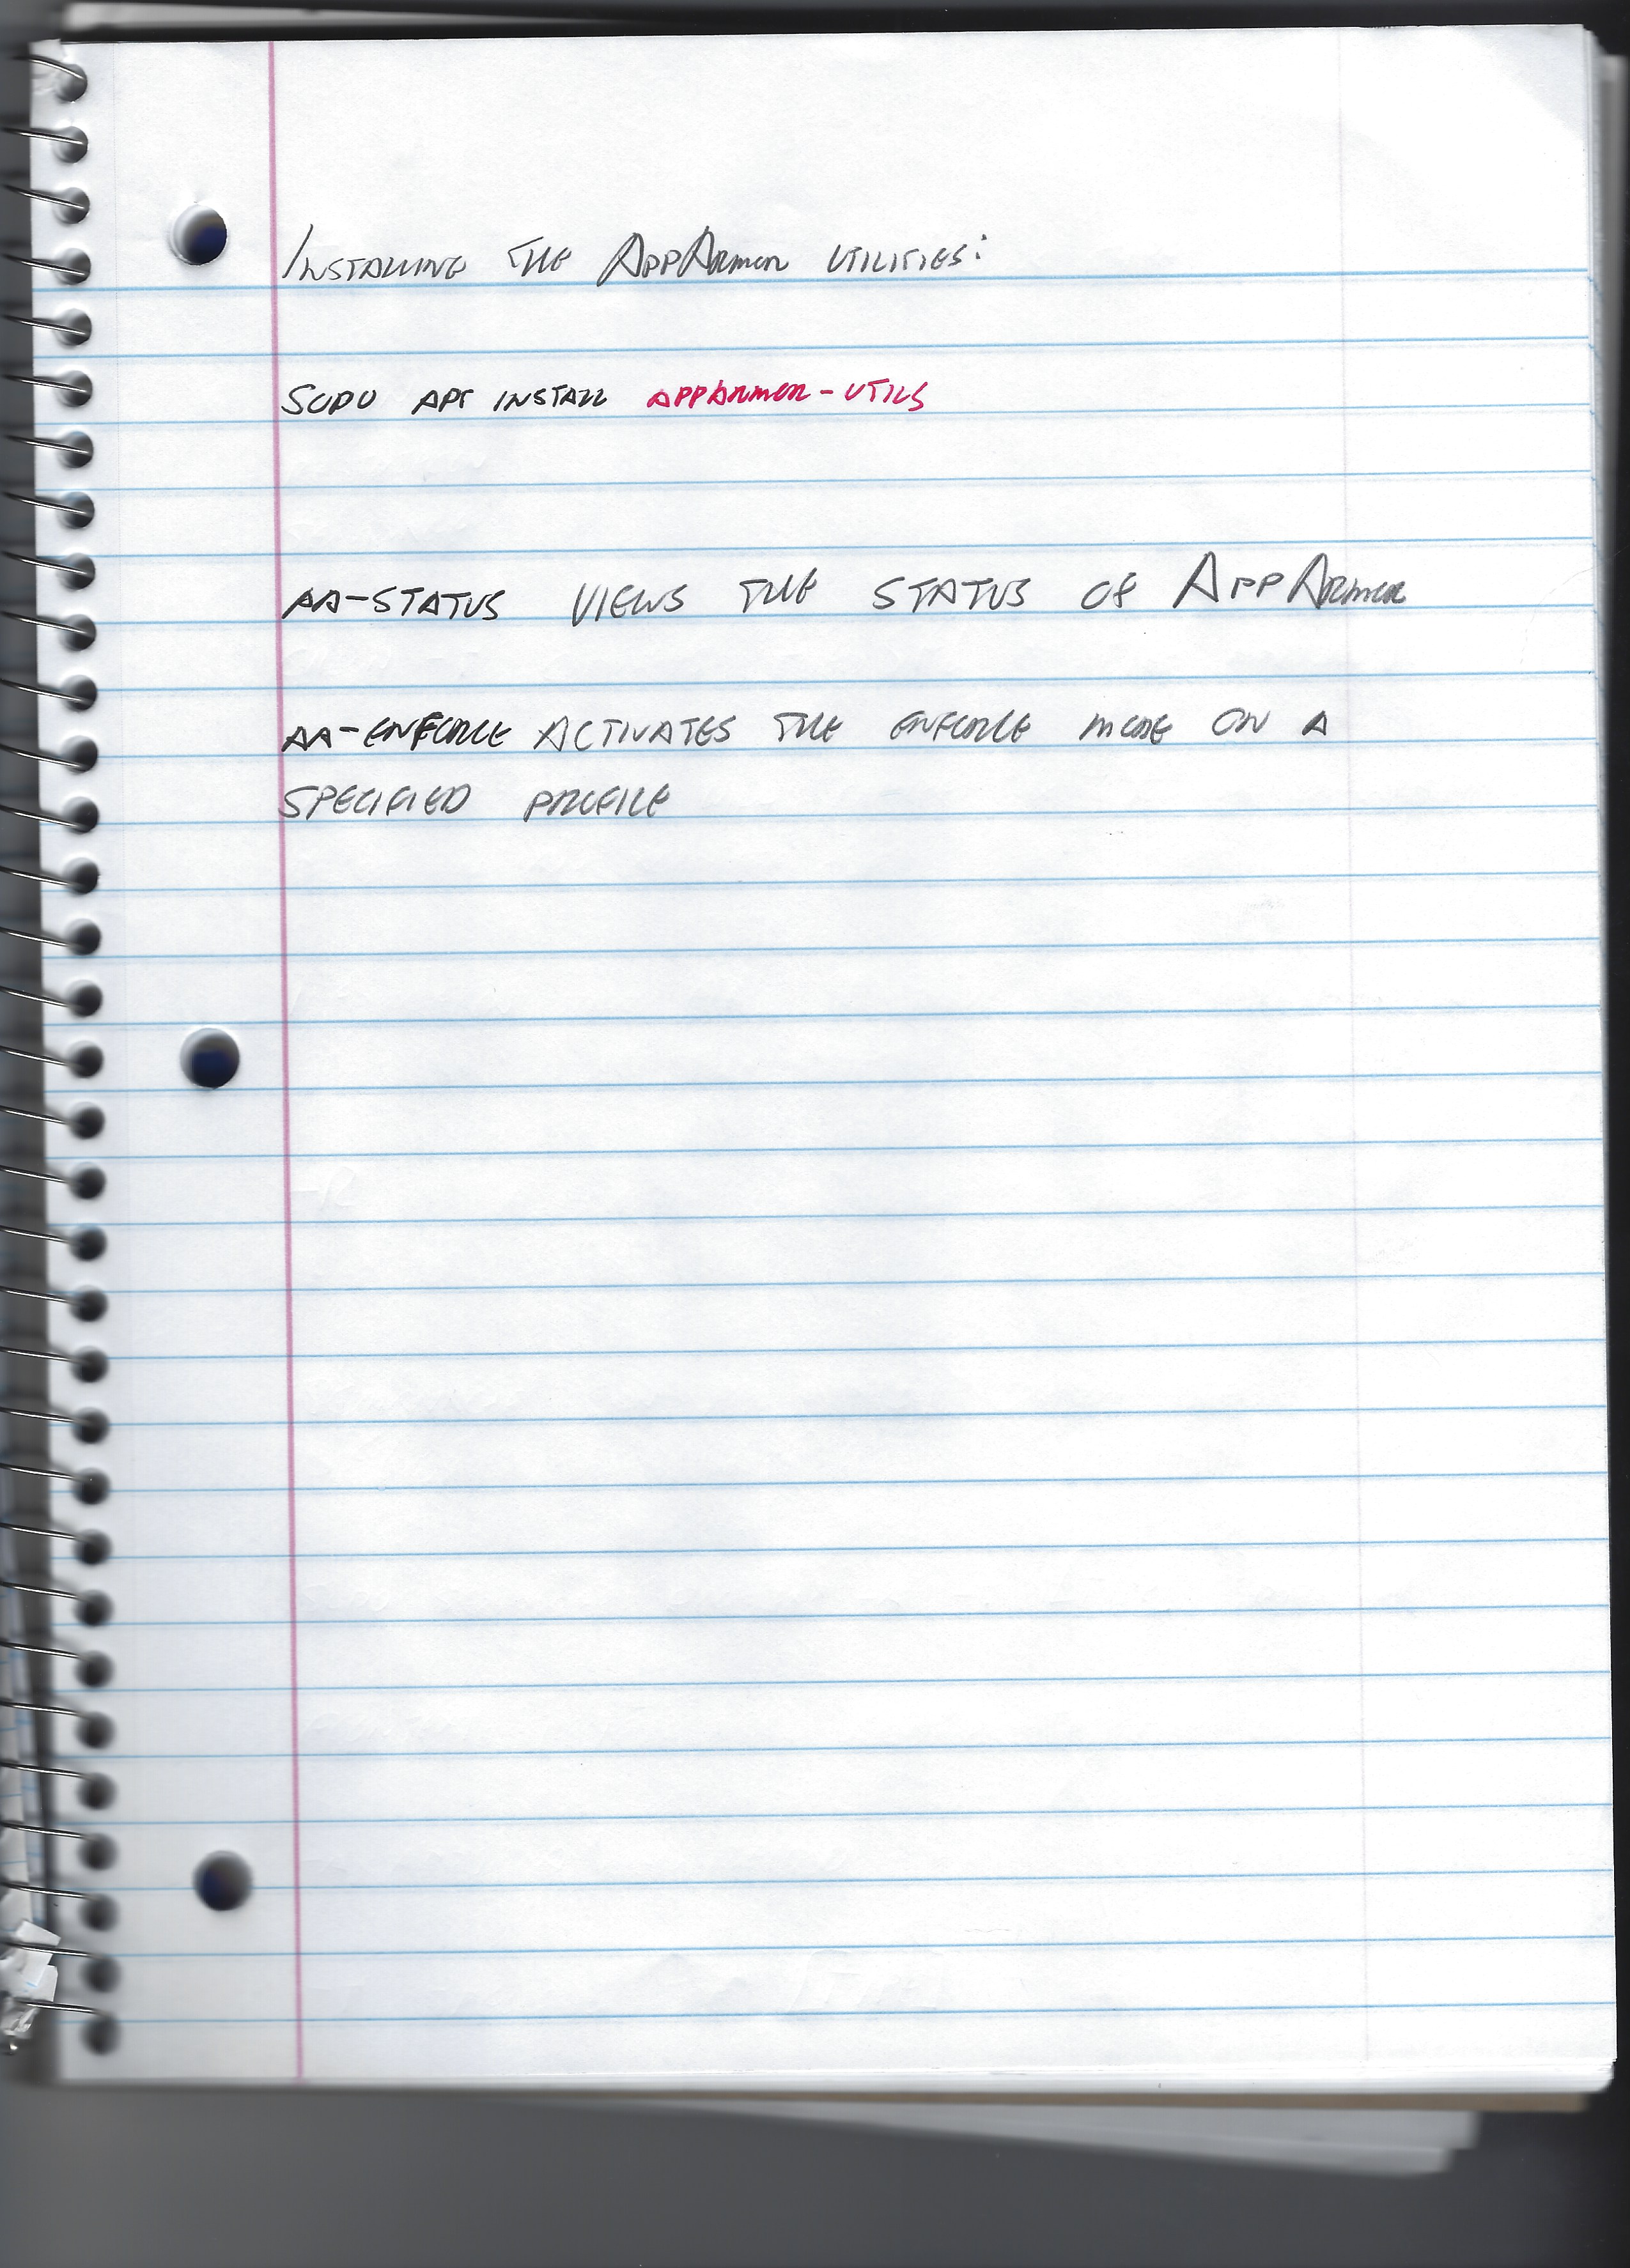 INSTALLING THE APPARMOR UTILITIES:
SUDO APT INSTALL APPARMOR-UTILS
AA-STATUS VIEWS THE STATUS OF APPARMOR
AA-ENFORCE ACTIVATES THE ENFORCE MODE ON A
SPECIFIED PROFILE